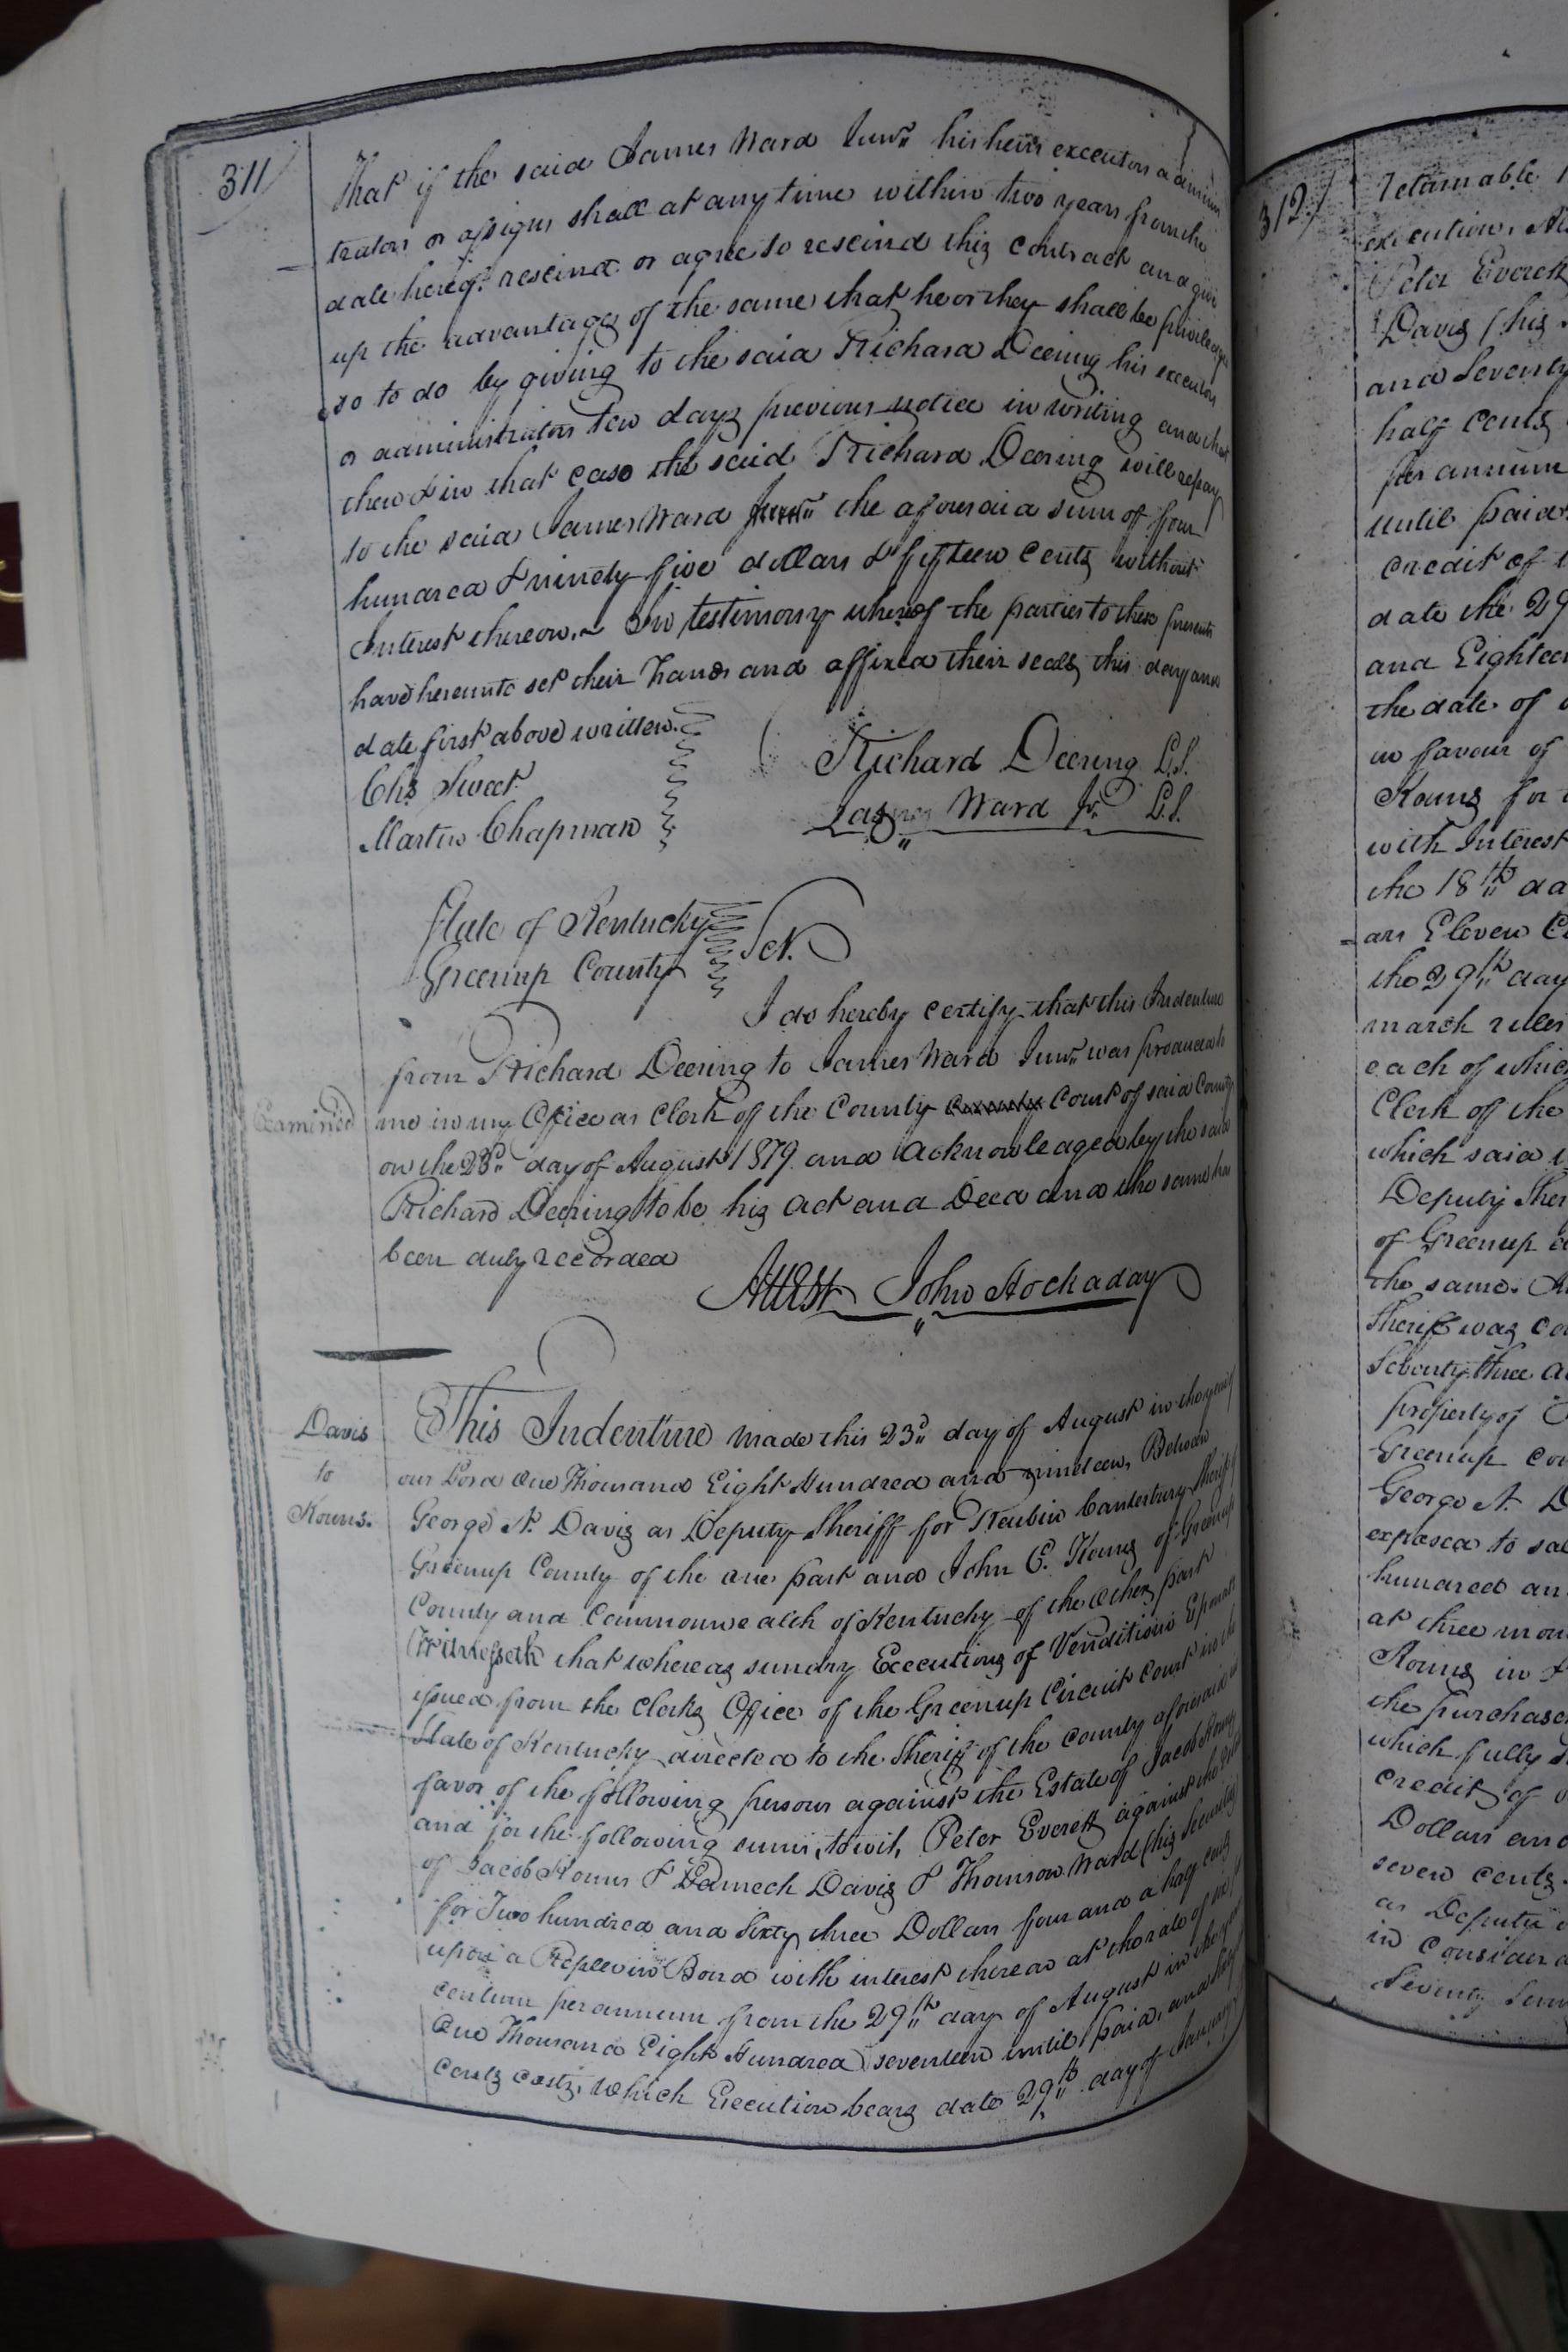 311
That if the said James Ward Junr. his heirs executors adminis
trators or assigns shall at any time within two years from the
date hereof rescind or agree to rescind this contract and give
up the advantages of the same that he or they shall be priviledged
so to do by giving to the said Richard Deering his executors
or administrators ten days previous notice in writing and that
then & in that case the said Richard Deering will repay
to the said James Ward Junr. the aforesaid sum of four
hundred & ninety five dollars & fifteen cents without
Interest thereon. In testimony whereof the parties to these presents
have hereunto set their hands and affixed their seals this day and
date first above written.
Chs. Sweet
Martin Chapman
Richard Deering L.S.
James Ward Jr. L.S.
State of Kentucky
Greenup County Sct.
I do hereby certify that this Indenture
from Richard Deering to James Ward Junr. was produced to
Examined
me in my Office as Clerk of the County Court of said County
on the 23d. day of August 1819 and acknowledged by the said
Richard Deering to be his act and Deed and the same has
been duly recorded
Attest John Hockaday
Davis
to
Kouns.
This Indenture made this 23d. day of August in the year of
our Lord One Thousand Eight Hundred and nineteen, Between
George N. Davis as Deputy Sheriff for Reubin Canterbury Sheriff
Greenup County of the one part and John C. Kouns of Greenup
County and Commonwealth of Kentucky of the other part
Witnesseth that whereas sundry Executions of Venditioni Exponas
issued from the Clerks Office of the Greenup Circuit Court in the
State of Kentucky directed to the Sheriff of the county aforesaid in
favor of the following persons against the Estate of Jacob Kouns
and for the following sums, to wit, Peter Everett against the Estate
of Jacob Kouns & Lamech Davis & Thomson Ward (his security
for Two hundred and Sixty three Dollars four and a half cents
upon a Replevin Bond with interest thereon at the rate of six p
centum per annum from the 29th day of August in the year
One Thousand Eight Hundred seventeen until paid, and
cents costs, which Execution bears date 29th day of January
312
retainable
execution,
Peter Everett
Davis (his
and Seventy
half cents
per annum
until paid
credit of
date the 29
and Eighteen
the date of
in favour of
Kouns for
with Interest
the 18th da
an Eleven
the 29th day
march rules
each of which
Clerk of the
which said
Deputy Sher
of Greenup
the same.
Sheriff was
Seventy three
property of
Greenup cou
George N. D
exposed to sal
hundred an
at three mon
Kouns in
the purchase
which fully
credit of
Dollars and
seven cents.
as Deputy
in consider
Seventy